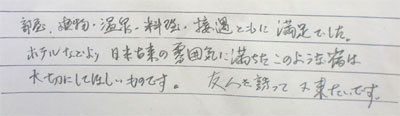 部屋、建物・温泉・料理・接遇ともに満足でした。
ホテルなどより日本古来の雰囲気に満ちたこのような宿は
大切にしてほしいものです。 友人を誘って又来たいです。